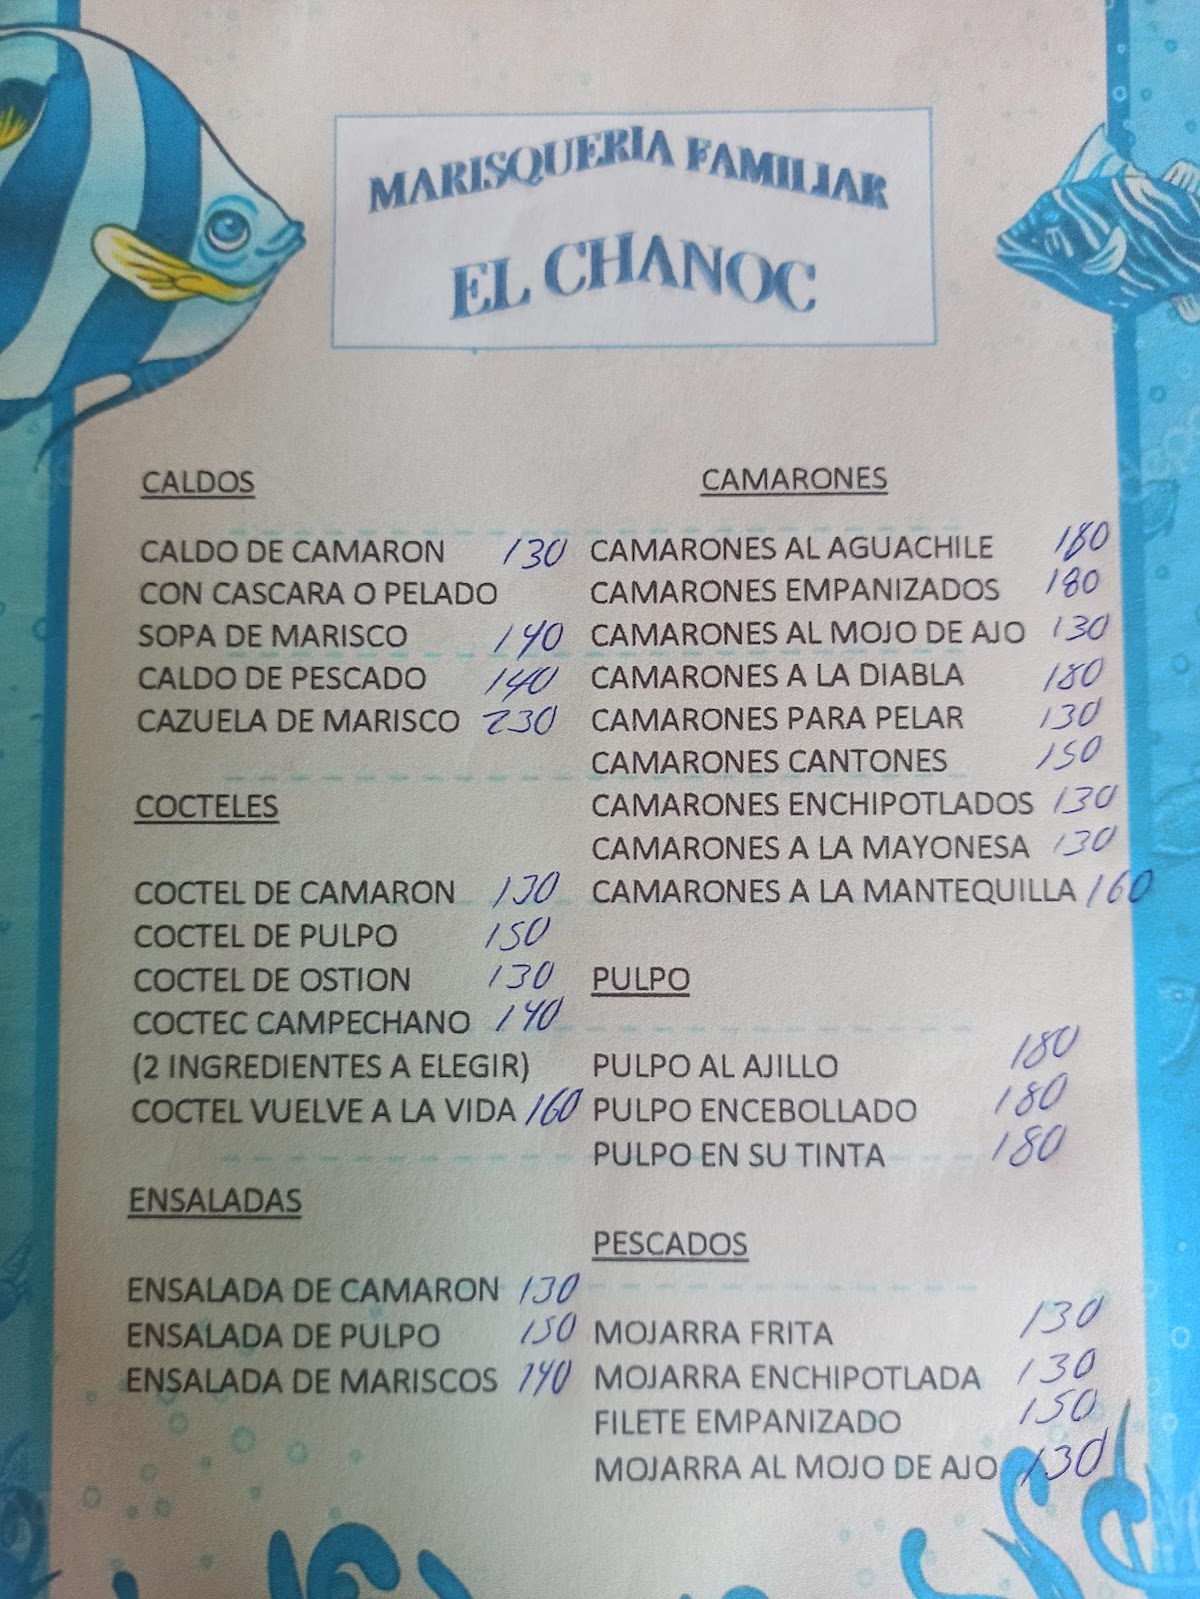 MARISQUERIA FAMILIAR
EL CHANOC
CALDOS
CALDO DE CAMARON 130
CON CASCARA O PELADO
SOPA DE MARISCO 140
CALDO DE PESCADO 140
CAZUELA DE MARISCO 230
COCTELES
COCTEL DE CAMARON 130
COCTEL DE PULPO 150
COCTEL DE OSTION 130
COCTEC CAMPECHANO 140
(2 INGREDIENTES A ELEGIR)
COCTEL VUELVE A LA VIDA 160
ENSALADAS
ENSALADA DE CAMARON 130
ENSALADA DE PULPO 150
ENSALADA DE MARISCOS 140
CAMARONES
CAMARONES AL AGUACHILE 180
CAMARONES EMPANIZADOS 180
CAMARONES AL MOJO DE AJO 130
CAMARONES A LA DIABLA 180
CAMARONES PARA PELAR 130
CAMARONES CANTONES 150
CAMARONES ENCHIPOTLADOS 130
CAMARONES A LA MAYONESA 130
CAMARONES A LA MANTEQUILLA 160
PULPO
PULPO AL AJILLO 180
PULPO ENCEBOLLADO 180
PULPO EN SU TINTA 180
PESCADOS
MOJARRA FRITA 130
MOJARRA ENCHIPOTLADA 130
FILETE EMPANIZADO 150
MOJARRA AL MOJO DE AJO 130